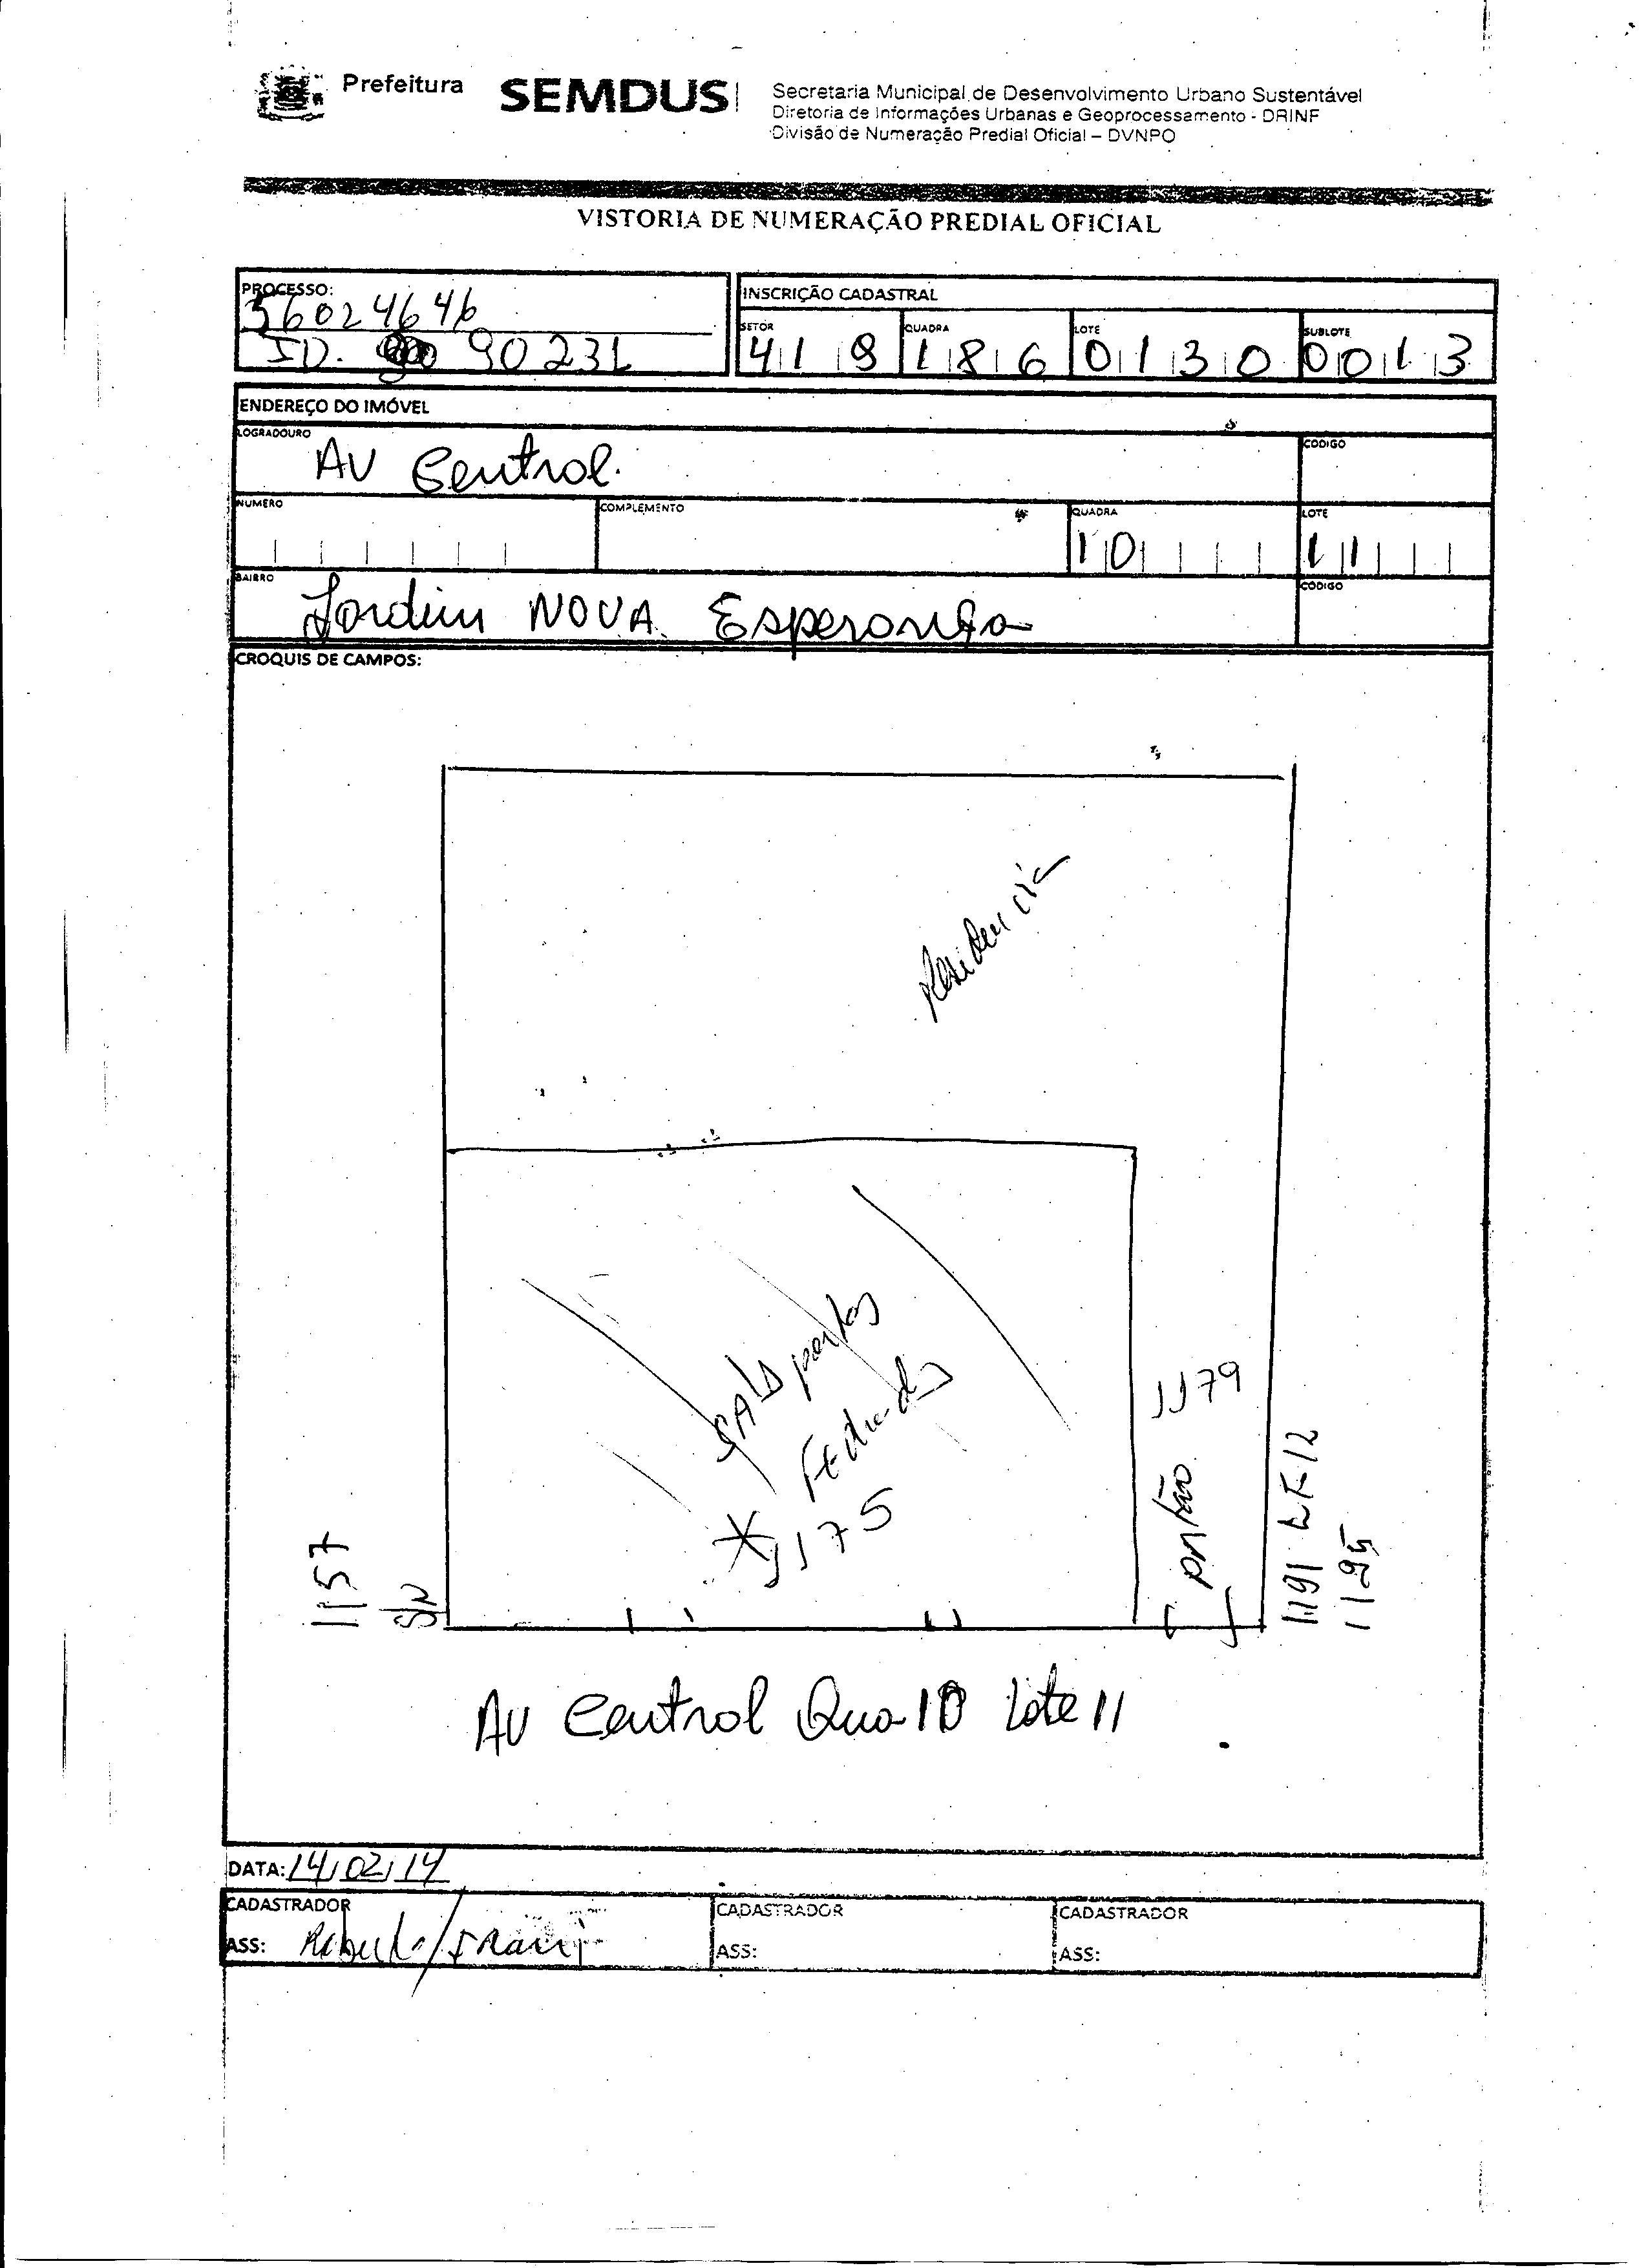 Prefeitura SEMDUS
Secretaria Municipal de Desenvolvimento Urbano Sustentável
Diretoria de Informações Urbanas e Geoprocessamento - DRINF
Divisão de Numeração Predial Oficial – DVNPO
VISTORIA DE NUMERAÇÃO PREDIAL OFICIAL
PROCESSO:
56024646
ID. 90231
INSCRIÇÃO CADASTRAL
SETOR QUADRA LOTE SUBLOTE
419 186 0130 0013
ENDEREÇO DO IMÓVEL
LOGRADOURO CODIGO
AV Central.
NUMERO COMPLEMENTO QUADRA LOTE
10 11
BAIRRO CODIGO
Jardim NOVA Esperança
CROQUIS DE CAMPOS:
Residencia
SALS portas
Fechadas
* 1175
1179
portão
1157
SN
1191 LT-12
1195
AV Central Qua 10 Lote 11
DATA: 14/02/14
CADASTRADOR CADASTRADOR CADASTRADOR
ASS: ASS: ASS: